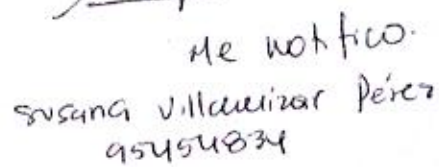 Me notifico.
Susana Villamizar Pérez
95454834